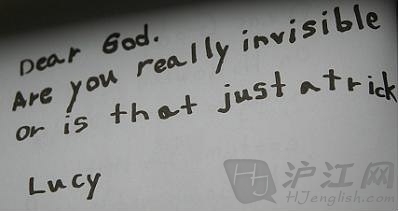 Dear God.
Are you really invisible
or is that just a trick
Lucy
沪江网
HJ
HJenglish.com